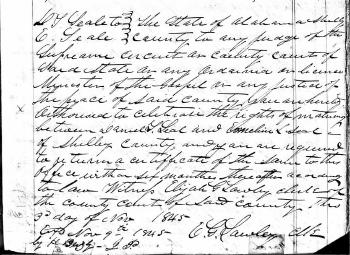 D F Seale to } The State of Alabama Shelby
C. Seale } County to any judge of the
Supreme circuit or county court of
said State or any Ordained or licensed
Minister of the Gospel or any justice of
the peace of said county, you are hereby
Authorised to celebrate the rights of matrimony
between Daniel F. Seal and Cornelia Seal
of Shelby County, and you are required
to return a certificate of the same to this
office within six months thereafter according
to law Witness Elijah G Lawley clerk of
the county court of said county, this
3d day of Nov 1845
Nov 9th 1845 E. G. Lawley Clk
by